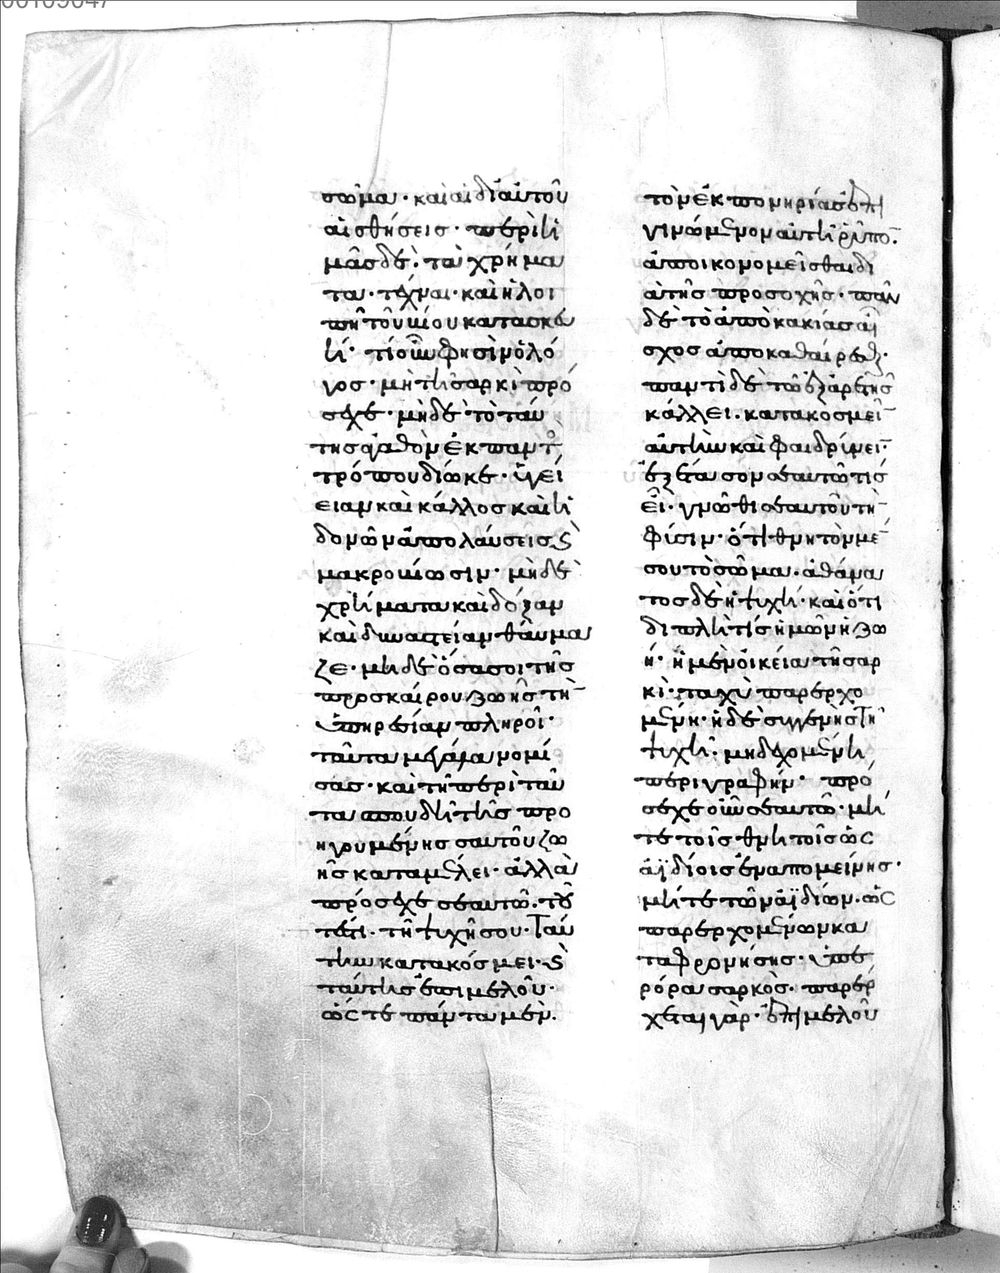 σῶμα · καὶ αἱ δι' αὐτοῦ
αἰσθήσεις · περὶ ἡ
μᾶς δὲ · τὰ χρήμα
τα · τέχναι · καὶ ἡ λοι
πὴ τοῦ βίου κατασκευ
ή · τί οὖν φησὶν ὁ λό
γος · μὴ τῆ σαρκὶ πρό
σεχε · μηδὲ τὸ ταύ
της ἀγαθὸν ἐκ παντ(ὸς)
τρόπου δίωκε · ὑγεί
ειαν καὶ κάλλος καὶ ἡ
δονῶν ἀπολαύσεις ϗ
μακροβίωσιν · μὴ δὲ
χρήματα καὶ δόξαν
καὶ δυναστείαν θαύμα
ζε · μὴ δὲ ὅσα σοι τῆς
προσκαίρου ζωῆς τὴν
ὑπηρεσίαν πληροῖ ·
ταῦτα μεγάλα νομί
σας · καὶ τῆ περὶ ταῦ
τα σπουδῆ τῆς προ
ηγουμένης σαυτοῦ ζω
ῆς καταμέλει · ἀλλὰ
πρόσεχε σεαυτῶ · τοῦ
τέστι · τῆ ψυχῆ σου · Ταύ
την κατακόσμει · ϗ
ταύτης ἐπιμελοῦ ·
ὥστε πάντα μὲν
τὸν ἐκ πονηρίας ἐπι
γινόμενον αὐτῆ ῥύπον
ἀποικονομεῖσθαι δι
ὰ τῆς προσοχῆς · πᾶν
δὲ τὸ ἀπὸ κακίας αἶ
σχος ἀποκαθαίρεσθαι ·
παντὶ δὲ τῶ ἐξ ἀρετῆς
κάλλει · κατακοσμεῖν
αὐτὴν καὶ φαιδρύνειν ·
ἐξέτασον σεαυτὸν τίς
εἶ · γνῶθι σεαυτοῦ τὴν
φύσιν · ὅτι θνητὸν μέν
σου τὸ σῶμα · ἀθάνα
τος δὲ ἡ ψυχή · καὶ ὅτι
διπλῆ τίς ἡμῶν ἡ ζω
ή · ἡ μὲν οἰκεία τῆ σαρ
κὶ · ταχὺ παρερχο
μένη · ἡ δὲ συγγενὴς τῆ
ψυχῆ · μὴ δεχομένη
περιγραφήν · πρό
σεχε οὖν σεαυτῶ · μή
τε τοῖς θνητοῖς ὡς
ἀϊδίοις ἐναπομείνης ·
μήτε τῶν ἀϊδίων · ὡς
παρερχομένων κα
ταφρονήσης · ὑπε
ρόρα σαρκὸς · παρέρ
χεται γάρ · ἐπιμελοῦ